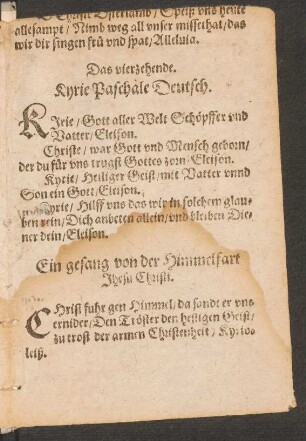 Christ Osterlamb / Speiß vns heute
allesampt / Nimb weg all vnser missethat / das
wir dir singen frü vnd spat / Alleluia.
Das vierzehende.
Kyrie Paschale Deutsch.
KIrie / Gott aller Welt Schöpffer vnd
Vatter / Eleison.
Christe / war Gott vnd Mensch geborn /
der du für vns trugst Gottes zorn / Eleison.
Kyrie / Heiliger Geist / mit Vatter vnnd
Son ein Gott / Eleison.
Kyrie / Hilff vns das wir in solchem glau-
ben rein / Dich anbeten allein / vnd bleiben Die-
ner dein / Eleison.
Ein gesang von der Himmelfart
Jhesu Christi.
CHrist fuhr gen Himmel / da sandt er vns
hernider / Den Tröster den heiligen Geist /
zu trost der armen Christenheit / Kyrio-
leiß.